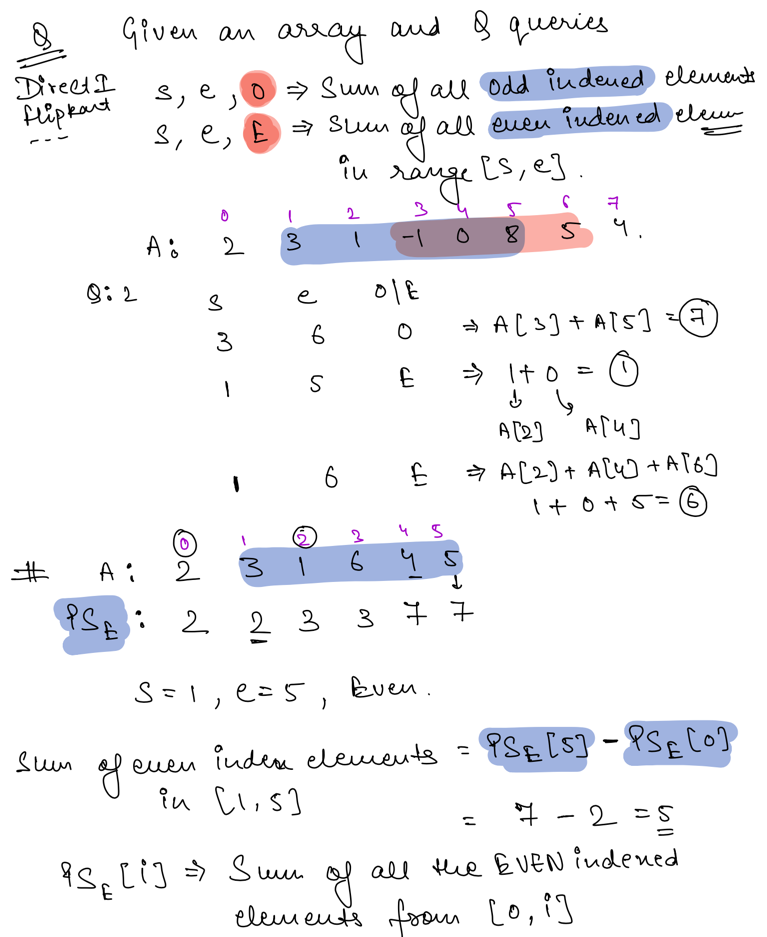 Q Given an array and Q queries
Directi
flipkart
---
s, e, O ⇒ Sum of all odd indexed elements
s, e, E ⇒ Sum of all even indexed elem
in range [s, e].
0 1 2 3 4 5 6 7
A: 2 3 1 -1 0 8 5 4.
Q: 2 s e O/E
3 6 O ⇒ A[3] + A[5] = 7
1 5 E ⇒ 1 + 0 = 1
A[2] A[4]
1 6 E ⇒ A[2] + A[4] + A[6]
1 + 0 + 5 = 6
0 1 2 3 4 5
# A: 2 3 1 6 4 5
PS_E: 2 2 3 3 7 7
S=1, e=5, Even.
Sum of even index elements = PS_E[5] - PS_E[0]
in [1,5]
= 7 - 2 = 5
PS_E[i] ⇒ Sum of all the EVEN indexed
elements from [0,i]